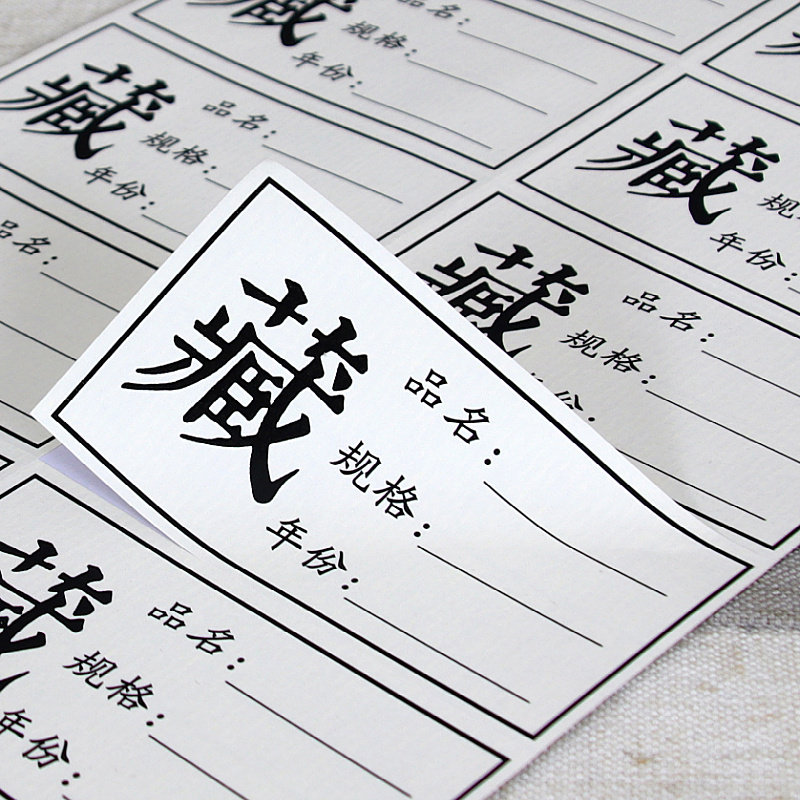 品名:
规格:
年份:
藏
品名:
规格:
年份:
藏
规
年份:
品名:
藏
品名:
规格:
藏
品名:
规格:
年份:
品名:
规格:
年份: